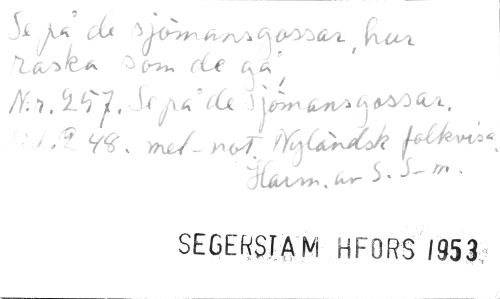 Se på de sjömansgossar, hur
raska som de gå,
N:r. 257. Se på de sjömansgossar.
48. mel-not. Nyländsk folkvisa.
Harm. av S. S-m.
SEGERSTAM HFORS 1953